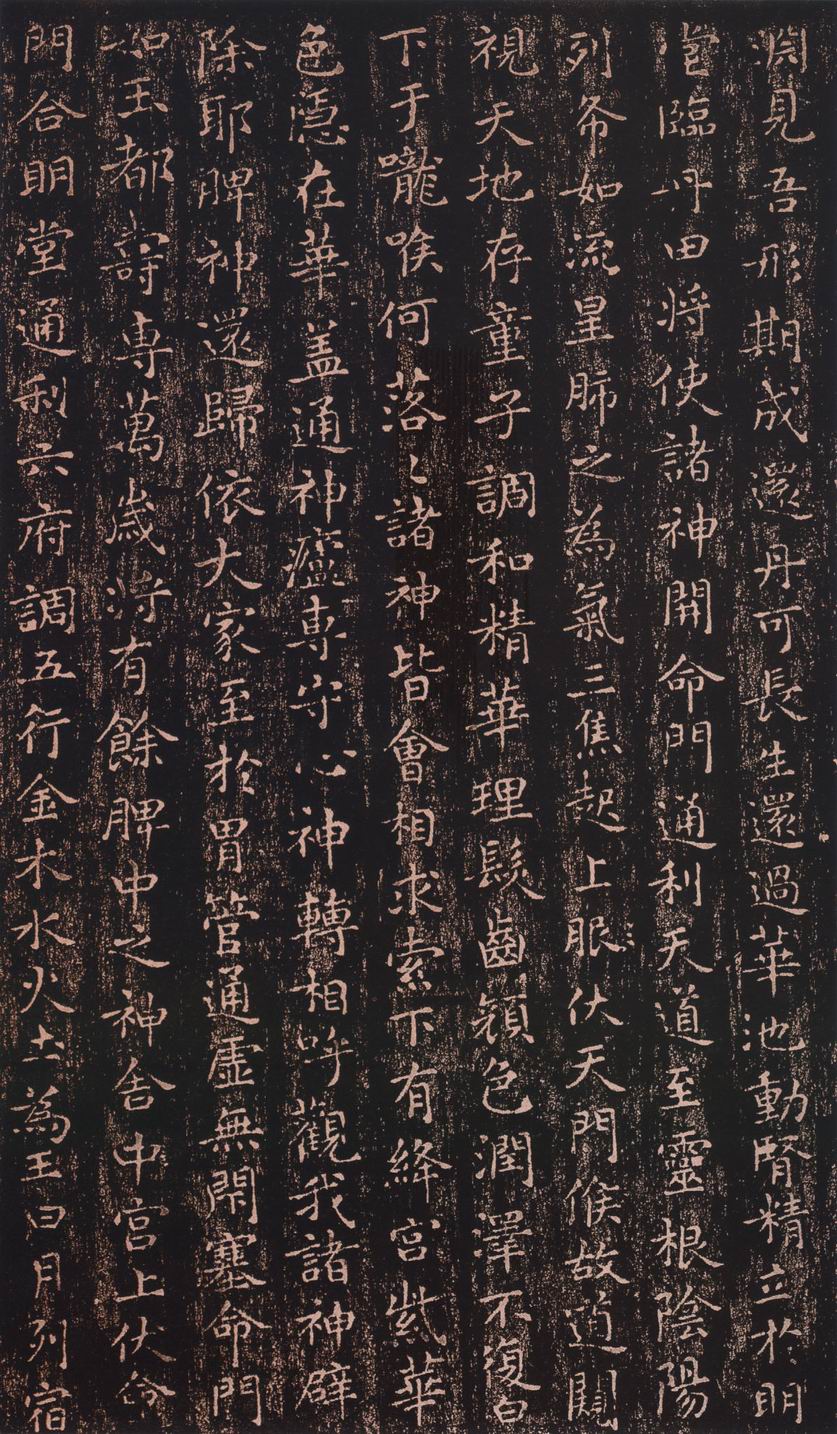 淵見吾形期成還丹可長生還過華池動腎精立於明
堂臨丹田將使諸神開命門通利天道至靈根陰陽
列布如流星肺之為氣三焦起上眼伏天門候故道闚
視天地存童子調和精華理髮齒顏色潤澤不復白
下于嚨喉何落〻諸神皆會相求索下有絳宮紫華
色隱在華蓋通神廬專守心神轉相呼觀我諸神辟
除耶脾神還歸依大家至於胃管通虛無閉塞命門
如玉都壽專萬歲將有餘脾中之神舍中宮上伏命
門合明堂通利六府調五行金木水火土為王日月列宿